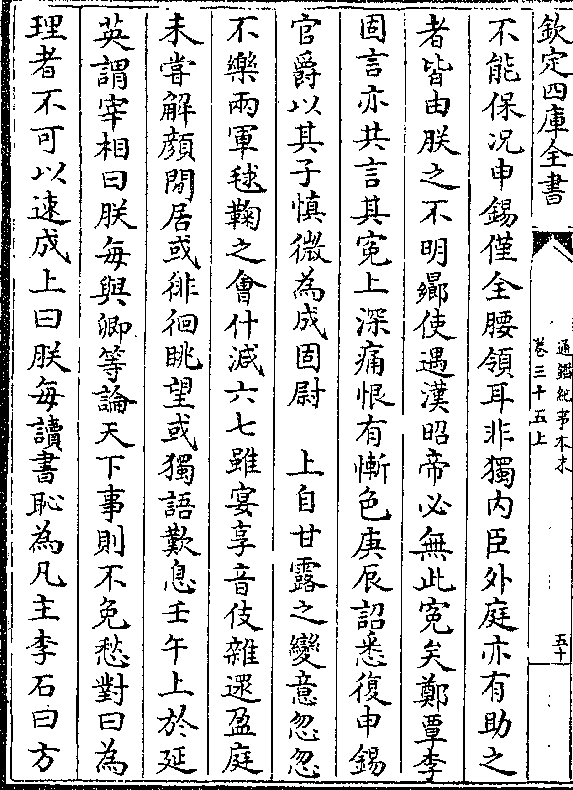 欽定四庫全書
通鑑紀事本末
卷三十五上
五十
不能保况申錫僅全腰領耳非獨内臣外庭亦有助之
者皆由朕之不明曏使遇漢昭帝必無此寃矣鄭覃李
固言亦共言其寃上深痛恨有慙色庚辰詔悉復申錫
官爵以其子慎微為成固尉　上自甘露之變意忽忽
不樂兩軍毬鞠之會什減六七雖宴享音伎雜遝盈庭
未嘗解顔閒居或徘徊眺望或獨語歎息壬午上於延
英謂宰相曰朕每與卿等論天下事則不免愁對曰為
理者不可以速成上曰朕每讀書恥為凡主李石曰方